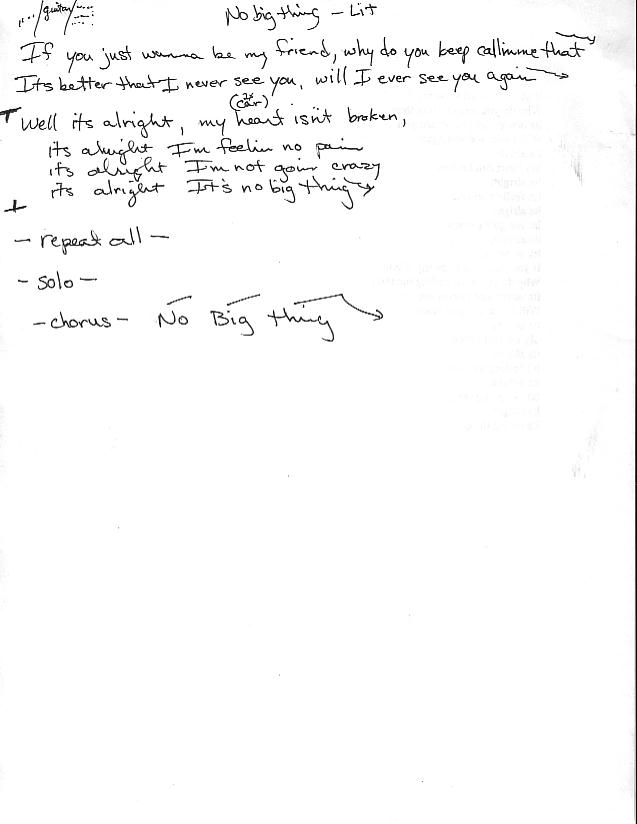 guitar
No big thing - Lit
If you just wanna be my friend, why do you keep callinme that
Its better that I never see you, will I ever see you again
(2x car)
Well its alright, my heart isn't broken,
its alright I'm feelin no pain
its alright I'm not goin crazy
its alright It's no big thing
- repeat all -
- solo -
- chorus - No Big thing